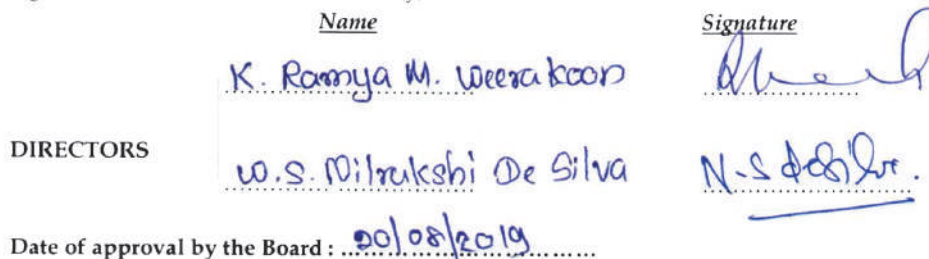 Name Signature
K. Ramya M. Weerakoon
DIRECTORS
W.S. Nilrukshi De Silva N-S deSilva.
Date of approval by the Board : 20/08/2019